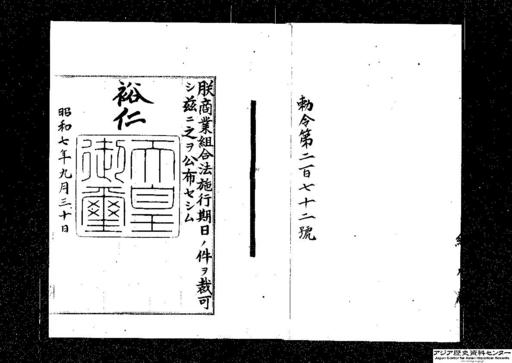 勅令第二百七十二號
朕商業組合法施行期日ノ件ヲ裁可
シ茲ニ之ヲ公布セシム
裕仁
天皇
御璽
昭和七年九月三十日
アジア歴史資料センター
Japan Center for Asian Historical Records